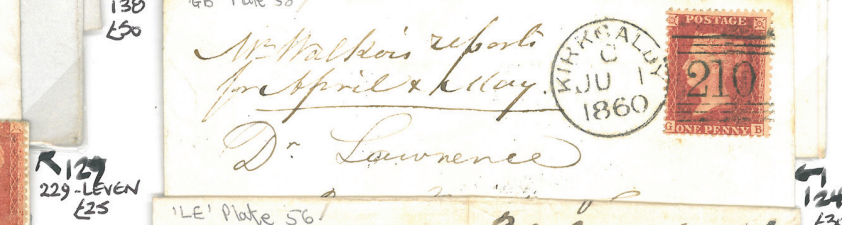 138
£50
'GB' Plate 50
Mr Walker's reports
for April & May.
Dr Lawrence
KIRKCALDY
C
JU 1
1860
POSTAGE
210
G ONE PENNY B
129
229-LEVEN
£25
124
'LE' Plate 56